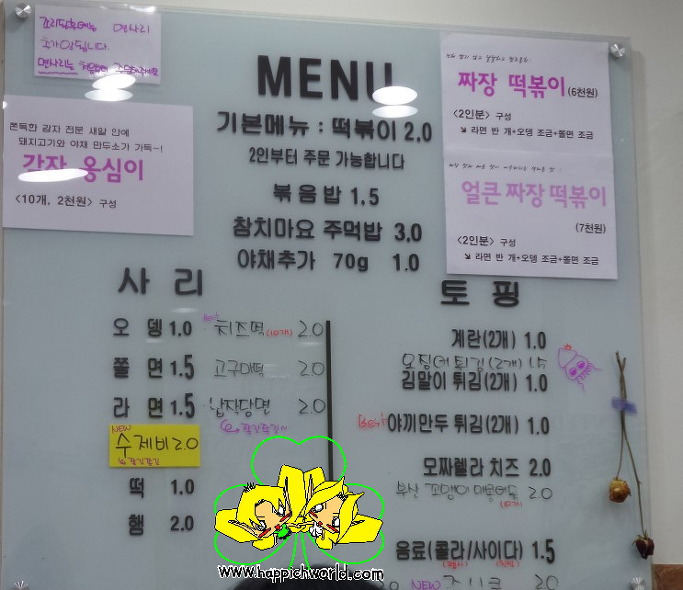 면사리
추가입니다.
면사리는
쫀득한 감자 전분 새알 안에
돼지고기와 야채 만두소가 가득~!
감자 옹심이
<10개, 2천원> 구성
MENU
기본메뉴 : 떡볶이 2.0
2인부터 주문 가능합니다
볶음밥 1.5
참치마요 주먹밥 3.0
야채추가 70g 1.0
짜장 떡볶이 (6천원)
<2인분> 구성
↘ 라면 반 개+오뎅 조금+쫄면 조금
얼큰 짜장 떡볶이
(7천원)
<2인분> 구성
↘ 라면 반 개+오뎅 조금+쫄면 조금
사리
오뎅 1.0
쫄면 1.5
라면 1.5
NEW
수제비 2.0
떡 1.0
햄 2.0
치즈떡 (10개) 2.0
고구마떡 2.0
납작당면 2.0
토핑
계란(2개) 1.0
오징어 튀김(2개) 1.5
김말이 튀김(2개) 1.0
Best 야끼만두 튀김(2개) 1.0
모짜렐라 치즈 2.0
부산 꼬맹이 2.0
음료(콜라/사이다) 1.5
NEW 2.0
www.happichworld.com